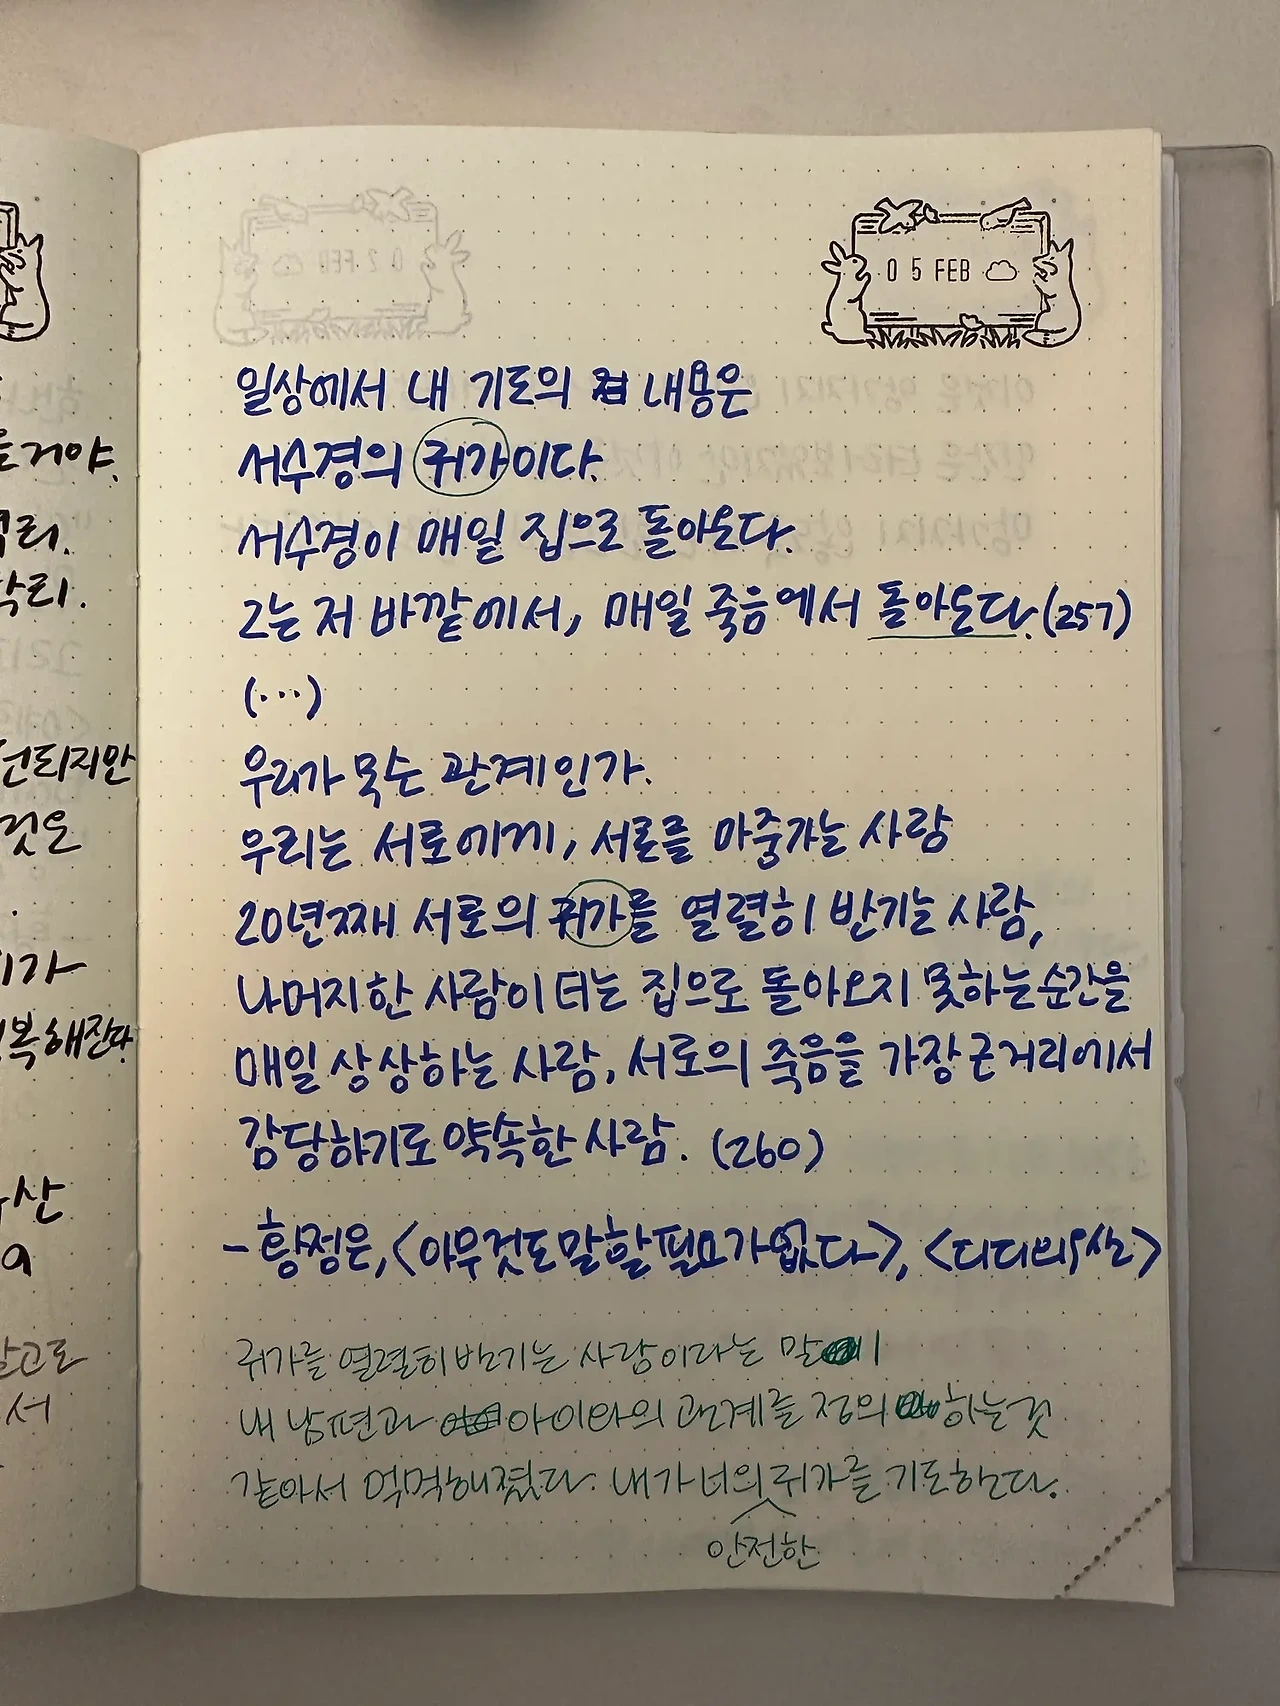 05 FEB
일상에서 내 기도의 내용은
서수경의 귀가이다.
서수경이 매일 집으로 돌아온다.
그는 저 바깥에서, 매일 죽음에서 돌아온다. (257)
(...)
우리가 무슨 관계인가.
우리는 서로에게, 서로를 마중가는 사람
20년째 서로의 귀가를 열렬히 반기는 사람,
나머지 한 사람이 더는 집으로 돌아오지 못하는 순간을
매일 상상하는 사람, 서로의 죽음을 가장 근거리에서
감당하기로 약속한 사람. (260)
- 황정은, <아무것도 말할 필요가 없다>, <디디의 우산>
귀가를 열렬히 반기는 사람이라는 말이
내 남편과 아이와의 관계를 정의하는 것
같아서 먹먹해졌다. 내가 너의 귀가를 기도한다.
안전한
든거야.
리.
락리.
전되지만
것은
가
복해진다.
산
고로
서